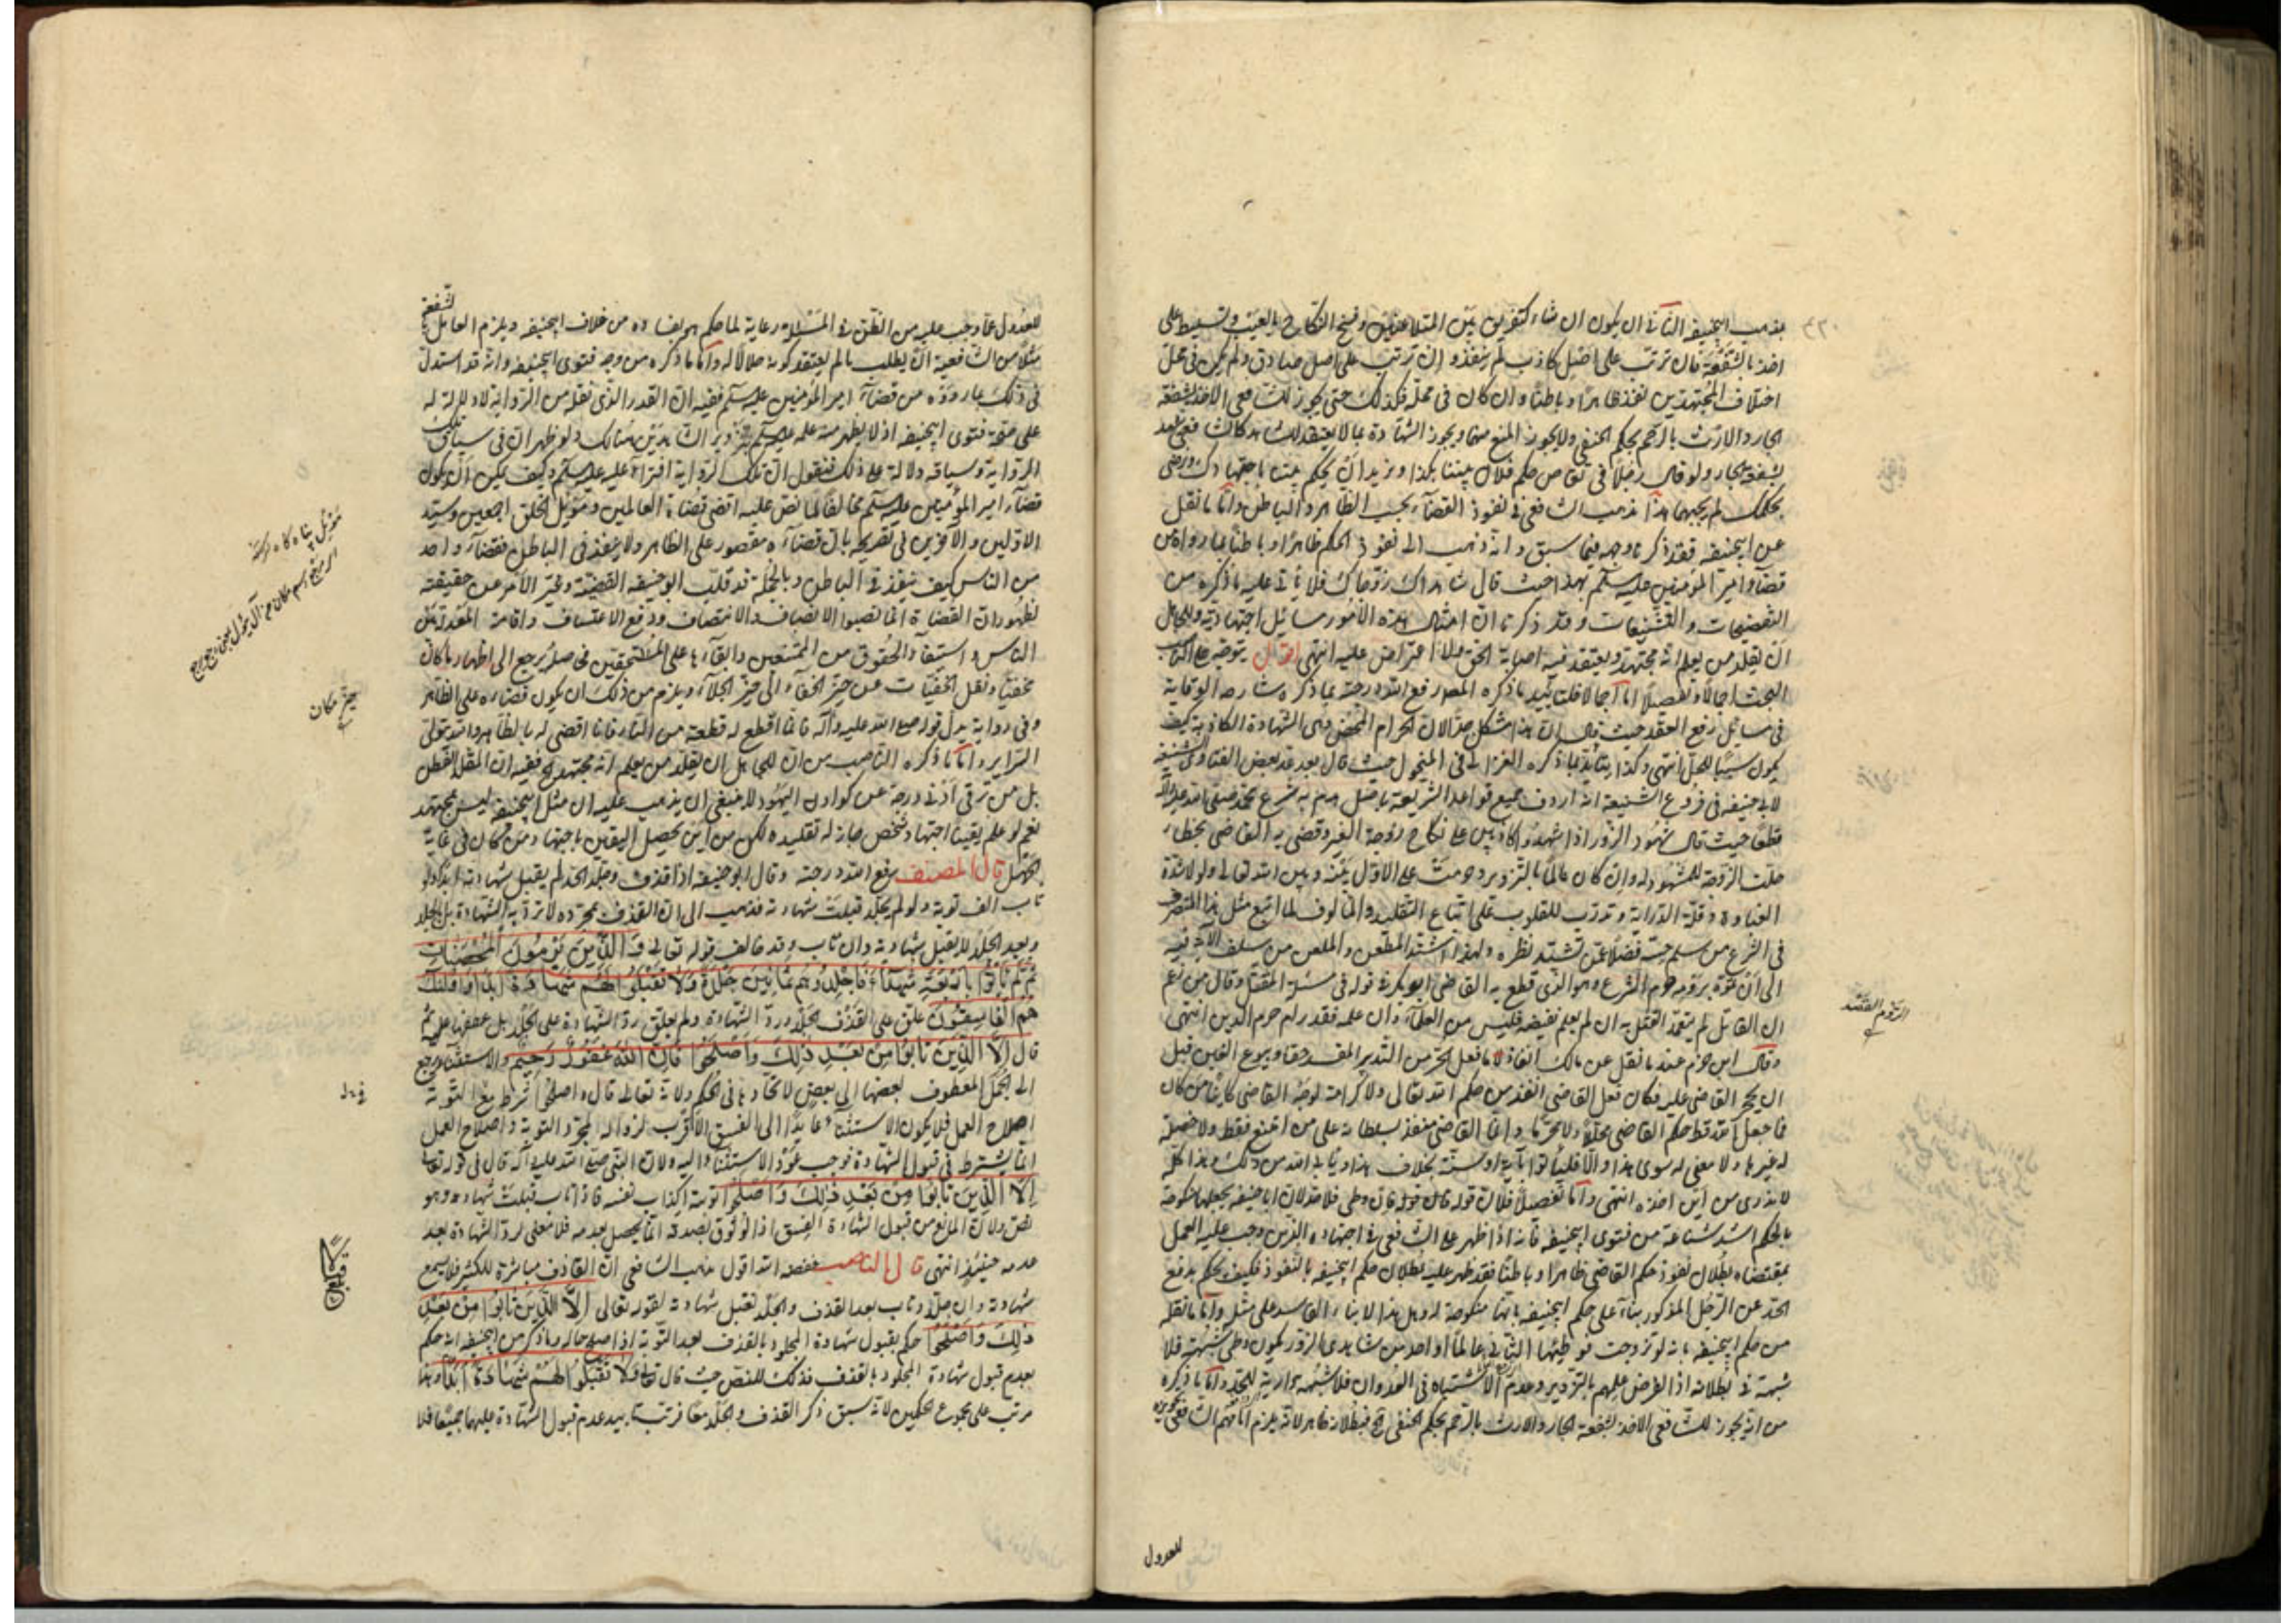 بمذهب ابيحنيفه الثاني ان يكون انشاء كتفريق بين المتلاعنين وفسخ النكاح بالعيب وتسليط على
اخذ بالشفعة فان ترتب على اصل كاذب لم ينفذ وان ترتب على اصل صادق ولم يكن في محل
اختلاف المجتهدين نفذ ظاهرا وباطنا وان كان في محله فكذلك حتى يجوز للشافعي الاخذ بشفعة
الجار والارث بالرحم بحكم الحنفي ولا يجوز المنع منهما ويجوز الشهادة بما لا يعتقد
بشفعة الجار ولو قال رجلان في تقاص حكم فلان بيننا بكذا ونريد ان يحكم بيننا باجتهادك ورضي
بحكمك لم يجبهما هذا مذهب الشافعي في نفوذ القضاء بحسب الظاهر والباطن واما ما نقل
عن ابيحنيفه فقد ذكرنا وجهه فيما سبق وانه ذهب الى نفوذ الحكم ظاهرا وباطنا بما رواه من
قضاء امير المؤمنين عليه السلم بهذا حيث قال شاهداك زوجاك فلا يأتي عليه ما ذكره من
التفضيحات والتشنيعات وقد ذكرنا ان امثال هذه الامور مسائل اجتهادية وللجاهل
ان يقلد من يعلم انه مجتهد ويعتقد فيه اصابة الحق فلا اعتراض عليه انتهى اقول يتوجه على
البحث اجمالا وتفصيلا اما اجمالا فلتأييد ما ذكره المص رفع الله درجته بما ذكره شارح الوقاية
في مسائل رفع العقد حيث قال ان هذا مشكل جدا لان الحرام المحض وهي الشهادة الكاذبة كيف
يكون سببا للحل انتهى وكذا يتأيد بما ذكره الغزالي في المنخول حيث قال بعد عد بعض الفتاوى الشنيعة
لابيحنيفه في فروع الشيعة انه اردف جميع قواعد الشريعة باصل هدم به شرع محمد صلى الله عليه وآله
قطعا حيث قال شهود الزور اذا شهدوا كاذبين على نكاح زوجة الغير وقضى به القاضي بخطاء
حلت الزوجة للمشهود له وان كان عالما بالتزوير وحرمت على الاول بينه وبين الله تعالى ولولا شدة
الغباوة وقلة الدراية وتدرب القلوب على اتباع التقليد والمألوف لما اتبع مثل هذا المتصرف
في الشرع من سلم حسه فضلا عمن تشتد نظره ولهذا اشتد المطعن والملعن من سلف الائمة فيه
الى ان اتهموه برومه خرم الشرع وهو الذي قطع به القاضي ابوبكر في قوله في مسئلة المثقل وقال من زعم
ان القاتل لم يتعمد القتل به ان لم يعلم نقيضه فليس من العلماء وان علمه فقد رام خرم الدين انتهى
وقال ابن حزم عندما نقل عن مالك انفاذ لما فعل الحر من التدبير المفسد حقا وبيوع الغبن قبل
ان يحجر القاضي عليه فكان فعل القاضي انفذ من حكم الله تعالى ولا كرامة لوجه القاضي كائنا من كان
فما جعل الله قط حكم القاضي محللا ولا محرما وانما القاضي منفذ بسلطانه على من امتنع فقط ولا فضيلة
له غيرها ولا معنى له سوى هذا والا فليأتوا بآية او سنة بخلاف هذا ويأبى الله من ذلك وهذا كله
لا ندري من اين اخذه انتهى واما تفصيلا فلان قوله فان قوله فان وطي فلا حد لان ابا حنيفه يجعلها منكوحة
بالحكم اشد شناعة من فتوى ابيحنيفه فانه اذا ظهر على الشافعي في اجتهاده الذي وجب عليه العمل
بمقتضاه بطلان نفوذ حكم القاضي ظاهرا وباطنا فقد ظهر عليه بطلان حكم ابيحنيفه بالنفوذ فكيف يحكم بدفع
الحد عن الرجل المذكور بناء على حكم ابيحنيفه بانها منكوحة له وهل هذا الا بناء الفاسد على مثله واما ما نقله
من حكم ابيحنيفه بانه لو تزوجت فوطئها الثاني عالما او احد من شاهدي الزور يكون وطي شبهة فلا
شبهة في بطلانه اذا الفرض علمهم بالتزوير وعدم الاشتباه في العدوان فلا شبهة دارئة للحد واما ما ذكره
من انه يجوز للشافعي الاخذ بشفعة الجار والارث بالرحم بحكم الحنفي الخ فبطلانه ظاهر لانه يلزم الشافعي
للعدول
للعدول عما وجب عليه من الظن في المسئلة رعاية لما حكم هو بفساده من خلاف ابيحنيفه ويلزم العامل بالشفعة
مثلا من الشافعية ان يطلب ما لم يعتقد كونه حلالا له واما ما ذكره من وجه فتوى ابيحنيفه وانه قد استدل
في ذلك بما رووه من قضاء امير المؤمنين عليه السلم ففيه ان القدر الذي نقله من الرواية لا دلالة له
على صحة فتوى ابيحنيفه اذ لا يظهر منه علمه عليه السلم بتزوير الشاهدين هنالك ولو ظهر ان في سياق تلك
الرواية وسياقه دلالة على ذلك فنقول ان تلك الرواية افتراء عليه عليه السلم وكيف يمكن ان يكون
قضاء امير المؤمنين عليه السلم مخالفا لما نص عليه اقضى قضاة العالمين وموئل الخلق اجمعين وسيد
الاولين والآخرين في تصريحه بان قضاءه مقصور على الظاهر ولا ينفذ في الباطل فقضاء واحد
من الناس كيف ينفذ في الباطل وبالجملة قد قلب ابوحنيفه القضية وغير الامر عن حقيقته
لظهور ان القضاة انما نصبوا الانصاف والانتصاف ودفع الاعتساف واقامة المعدلة بين
الناس واستيفاء الحقوق من الممتنعين وابقاءها على المستحقين فحاصله يرجع الى اظهار ما كان
مخفيا ونقل الخفيات عن حيز الخفاء الى حيز الجلاء ويلزم من ذلك ان يكون قضاءه على الظاهر
وفي رواية بدل قوله صلى الله عليه وآله فانما اقطع له قطعة من النار فانا اقضي له بالظاهر والله يتولى
السراير واما ما ذكره الناصب من ان للجاهل ان يقلد من يعلم انه مجتهد الخ ففيه ان المقلد الفطن
بل من ترقى ادنى درجة عن كوادن اليهود لا ينبغي ان يذهب عليه ان مثل ابيحنيفه ليس بمجتهد
نعم لو علم يقينا اجتهاد شخص جاز له تقليده لكن من اين يحصل اليقين باجتهاد من كان في غاية
الجهل قال المصنف رفع الله درجته وقال ابوحنيفه اذا قذف وجلد الحد لم يقبل شهادته ابدا ولو
تاب الف توبة ولو لم يجلد قبلت شهادته فذهب الى ان القذف بمجرده لا ترد به الشهادة بل الجلد
وبعد الجلد لا يقبل شهادته وان تاب وقد خالف قوله تعالى والذين يرمون المحصنات
ثم لم يأتوا باربعة شهداء فاجلدوهم ثمانين جلدة ولا تقبلوا لهم شهادة ابدا واولئك
هم الفاسقون علق على القذف الجلد ورد الشهادة ولم يعلق رد الشهادة على الجلد بل عطفها عليه ثم
قال الا الذين تابوا من بعد ذلك واصلحوا فان الله غفور رحيم والاستثناء يرجع
الى الجمل المعطوف بعضها الى بعض لاتحادها في الحكم ولانه تعالى قال واصلحوا شرط مع التوبة
اصلاح العمل فلا يكون الاستثناء عايدا الى الفسق الاقرب لزواله بمجرد التوبة واصلاح العمل
انما يشترط في قبول الشهادة فوجب عود الاستثناء اليه ولان النبي صلى الله عليه وآله قال في قوله تعالى
الا الذين تابوا من بعد ذلك واصلحوا توبته اكذاب نفسه فاذا تاب قبلت شهادته وهو
نص ولان المانع من قبول الشهادة الفسق اذ الوثوق بصدقه انما يحصل بعدمه فلا معنى لرد الشهادة بعد
عدمه حينئذ انتهى قال الناصب خفضه الله اقول مذهب الشافعي ان القاذف مباشرة للكبيرة فلا يسمع
شهادته وان جلد وتاب بعد القذف والجلد تقبل شهادته لقوله تعالى الا الذين تابوا من بعد
ذلك واصلحوا حكم بقبول شهادة المجلود بالقذف بعد التوبة اذا اصلح حاله وما ذكر من ابيحنيفه انه حكم
بعدم قبول شهادة المجلود بالقذف فذلك للنص حيث قال تعالى ولا تقبلوا لهم شهادة ابدا وهذا
مرتب على مجموع الحكمين لانه سبق ذكر القذف والجلد معا فرتب تأبيد عدم قبول الشهادة عليهما جميعا فلا